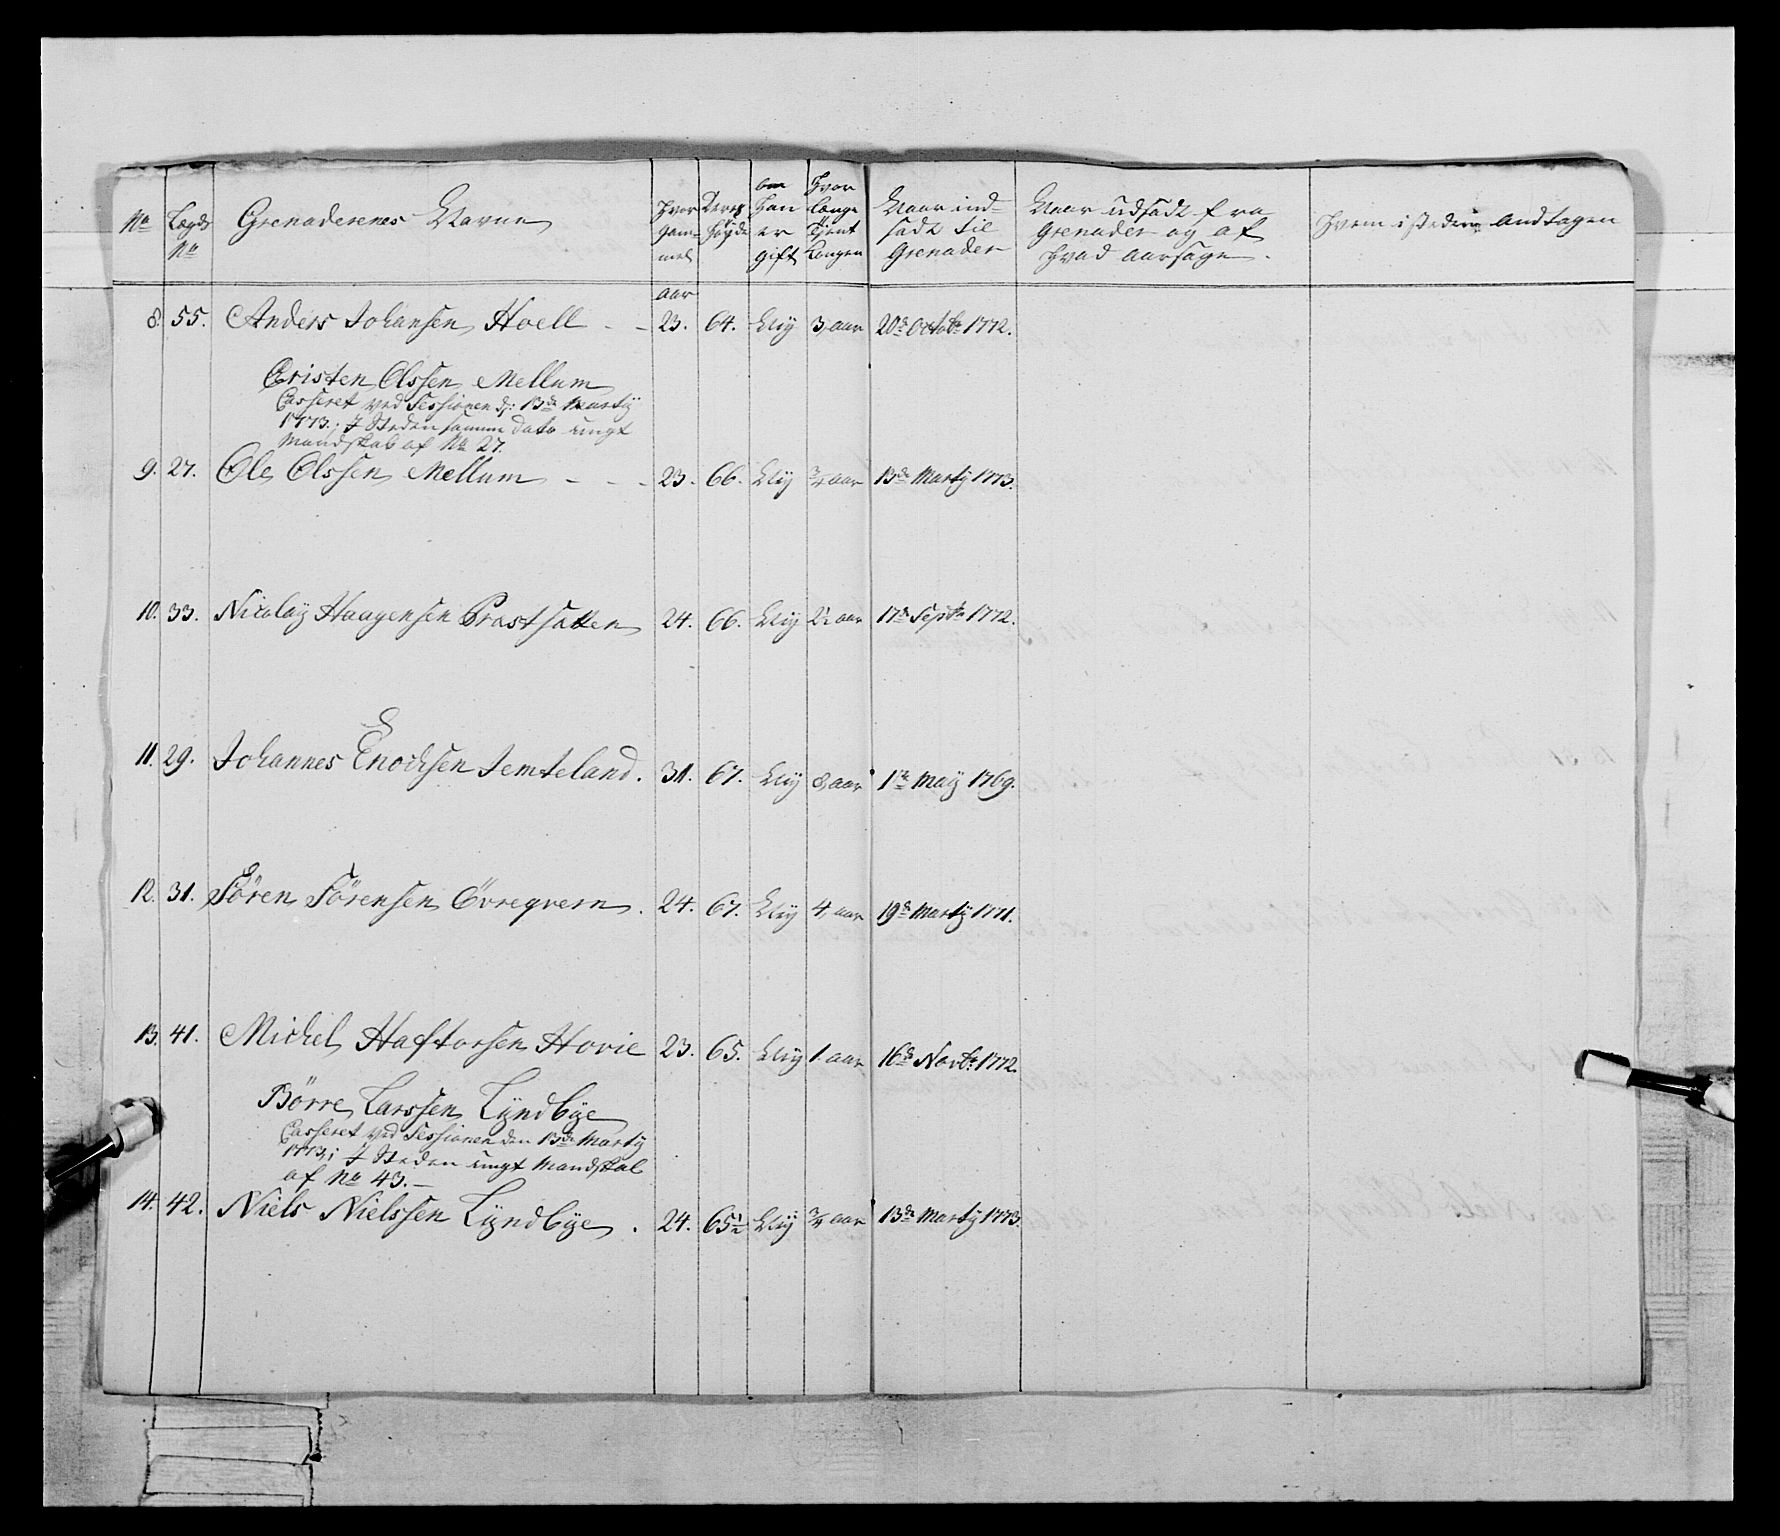 No
Lægds No
Grenaderenes Navne
Hvor gammel
Deres Høyde
om Han er gift
Hvor længe tient Kongen
Naar indsadt til Grenader
Naar udsadt fra Grenader og af Hvad aarsage.
Hvem i steden andtagen
aar
8. 55. Anders Johansen Hoell - - 23. 64. Ney 3 aar 20de Octobr 1772.
Cristen Olssen Mellum
Casseret ved Sessionen d: 13de Martij
1773. I Steden samme dato ungt
Mandskab af No 27.
9. 27. Ole Olssen Mellum - - - 23. 66. Ney 3/4 aar 13de Martij 1773.
10. 33. Nicolaÿ Haagensen Prastsatten 24. 66. Ney 2 1/2 aar 17de Septbr 1772.
11. 29. Johannes Enochsen Jemteland. 31. 67. Ney 8 aar 1te Maÿ 1769.
12. 31. Sören Sörensen Övreqvern. 24. 67. Ney 4 aar 19de Martij 1771.
13. 41. Michel Haftorsen Hovie 23. 65. Ney 1. aar 16de Novbr 1772.
Börre Larssen Lÿndbÿe
Casseret ved Sessionen den 13de Martij
1773; I Steden ungt Mandskab
af No 43. -
14. 42. Niels Nielssen Lÿndbÿe. 24. 65 1/2 Ney 3/4 aar 13de Martij 1773.